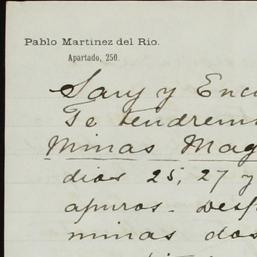 Pablo Martinez del Rio.
Apartado, 250.
Sary y Enc
Te tendrem
Minas Mag
dias 25, 27 y
apuros. Desp
minas dos